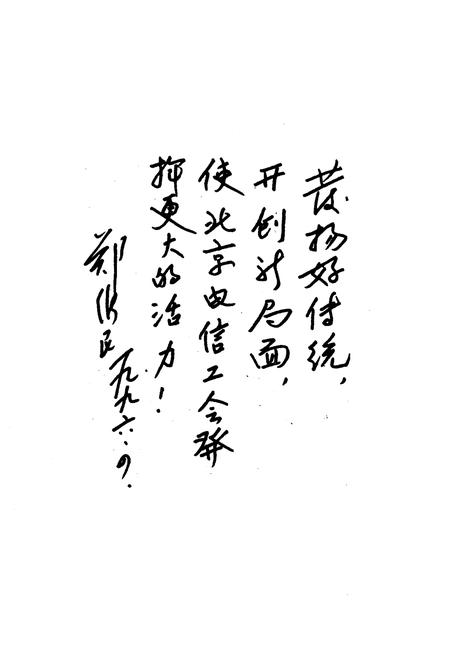 发扬好传统，
开创新局面，
使北京电信工会发
挥更大的活力！
郑
民一九九六·